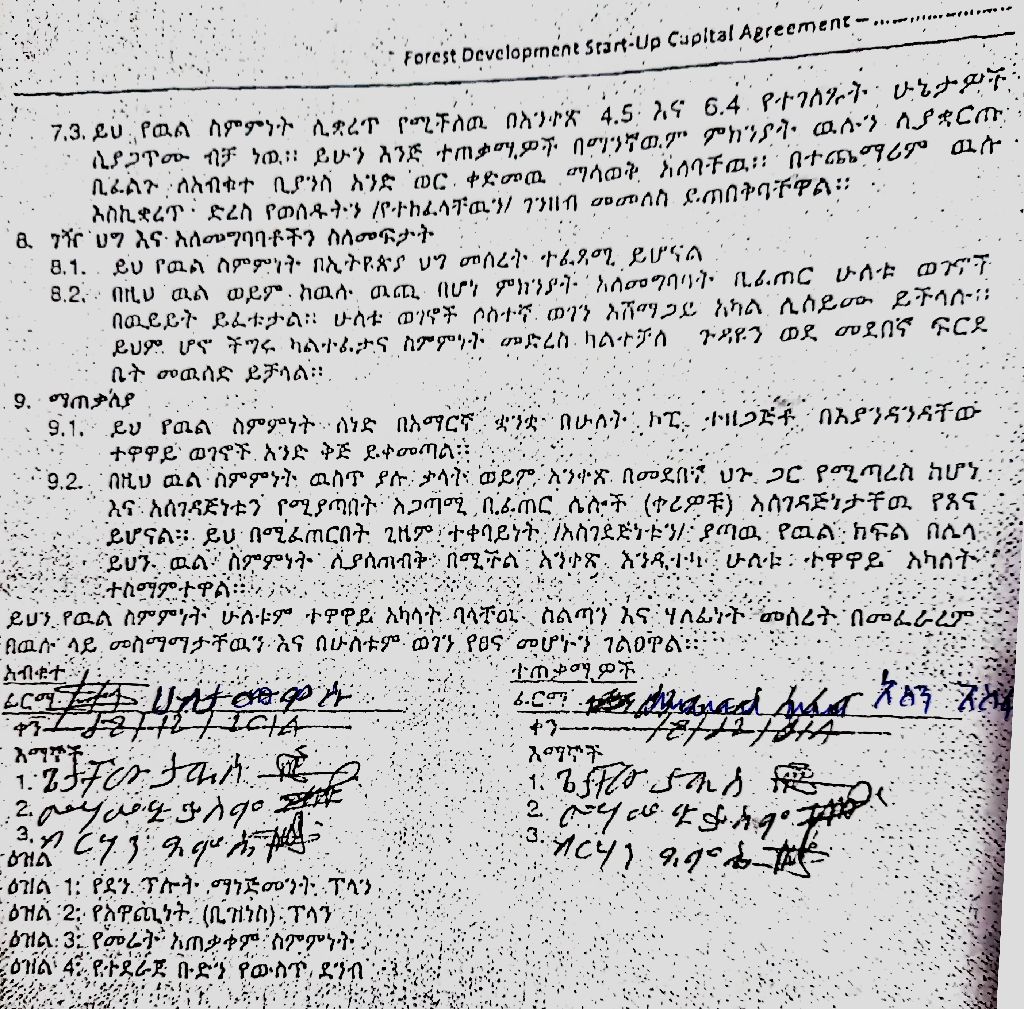 Forest Development Start-Up Capital Agreement – ........................
7.3. ይህ የዉል ስምምነት ሊቋረጥ የሚችለዉ በአንቀጽ 4.5 እና 6.4 የተገለጹት ሁኔታዎች
ሲያጋጥሙ ብቻ ነዉ፡፡ ይሁን እንጅ ተጠቃሚዎች በማንኛዉም ምክንያት ዉሉን ሊያቋርጡ
ቢፈልጉ ለአብቁተ ቢያንስ አንድ ወር ቀድመዉ ማሳወቅ አለባቸዉ፡፡ በተጨማሪም ዉሉ
እስኪቋረጥ ድረስ የወሰዱትን /የተከፈላቸዉን/ ገንዘብ መመለስ ይጠበቅባቸዋል፡፡
8. ገዥ ህግ እና አለመግባባቶችን ስለመፍታት
8.1. ይህ የዉል ስምምነት በኢትዮጵያ ህግ መሰረት ተፈጻሚ ይሆናል
8.2. በዚህ ዉል ወይም ከዉሉ ዉጪ በሆነ ምክንያት አለመግባባት ቢፈጠር ሁለቱ ወገኖች
በዉይይት ይፈቱታል፡፡ ሁለቱ ወገኖች ሶስተኛ ወገን አሸማጋይ አካል ሊሰይሙ ይችላሉ፡፡
ይህም ሆኖ ችግሩ ካልተፈታና ስምምነት መድረስ ካልተቻለ ጉዳዩን ወደ መደበኛ ፍርድ
ቤት መዉሰድ ይቻላል፡፡
9. ማጠቃለያ
9.1. ይህ የዉል ስምምነት ሰነድ በአማርኛ ቋንቋ በሁለት ኮፒ ተዘጋጅቶ በእያንዳንዳቸው
ተዋዋይ ወገኖች አንድ ቅጅ ይቀመጣል፡፡
9.2. በዚህ ዉል ስምምነት ዉስጥ ያሉ ቃላት ወይም አንቀጽ በመደበኛ ህጉ ጋር የሚጣረስ ከሆነ
እና አስገዳጅነቱን የሚያጣበት አጋጣሚ ቢፈጠር ሌሎች (ቀሪዎቹ) አስገዳጅነታቸዉ የጸና
ይሆናል፡፡ ይህ በሚፈጠርበት ጊዜም ተቀባይነት /አስገደጅነቱን/ ያጣዉ የዉል ክፍል በሌላ
ይህን ዉል ስምምነት ሊያስጠብቅ በሚችል አንቀጽ እንዲተካ ሁለቱ ተዋዋይ አካላት
ተስማምተዋል፡፡
ይህን የዉል ስምምነት ሁለቱም ተዋዋይ አካላት ባላቸዉ ስልጣን እና ሃላፊነት መሰረት በመፈራረም
በዉሉ ላይ መስማማታቸዉን እና በሁለቱም ወገን የፀና መሆኑን ገልፀዋል፡፡
አብቁተ
ተጠቃሚዎች
ፊርማ
ፊርማ
ቀን
ቀን
እማኞች
እማኞች
1.
1.
2.
2.
3.
3.
ዕዝል
ዕዝል 1: የደን ፕሎት ማነጅመንት ፕላን
ዕዝል 2: የአዋጪነት (ቢዝነስ) ፕላን
ዕዝል 3: የመሬት አጠቃቀም ስምምነት
ዕዝል 4: የተደራጀ ቡድን የውስጥ ደንብ